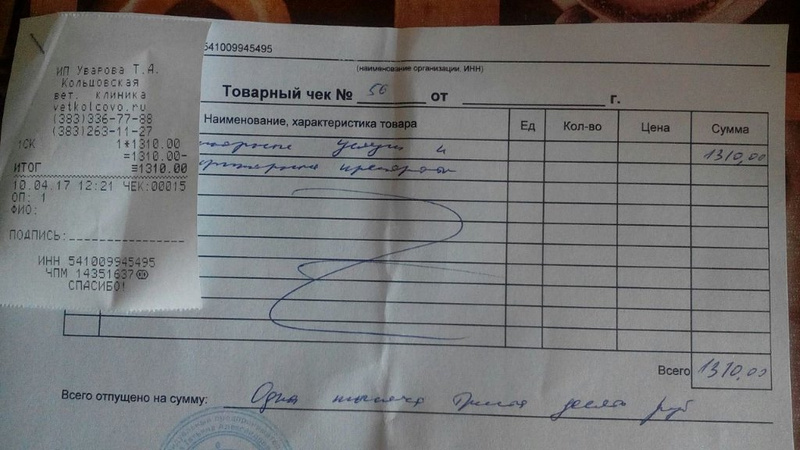 ИП Уварова Т.А.
Кольцовская
вет. клиника
vetkolcovo.ru
(383)336-77-88
(383)263-11-27
1СК 1*1310.00
=1310.00-
ИТОГ ≡1310.00
10.04.17 12:21 ЧЕК:00015
ОП: 1
ФИО:
ПОДПИСЬ:
ИНН 541009945495
ЧПМ 14351637
СПАСИБО!
541009945495
(наименование организации, ИНН)
Товарный чек № 56 от г.
Наименование, характеристика товара Ед Кол-во Цена Сумма
услуги и 1310,00
препараты
Всего 1310,00
Всего отпущено на сумму: Одна тысяча триста десять руб